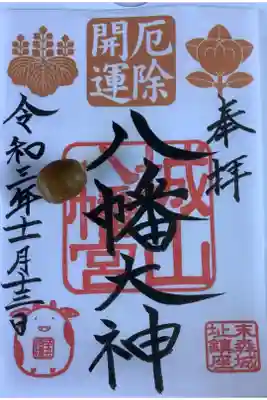 厄除
開運
奉拝
城山
八幡宮
八幡大神
末森城
址鎮座
令和三年十一月十三日